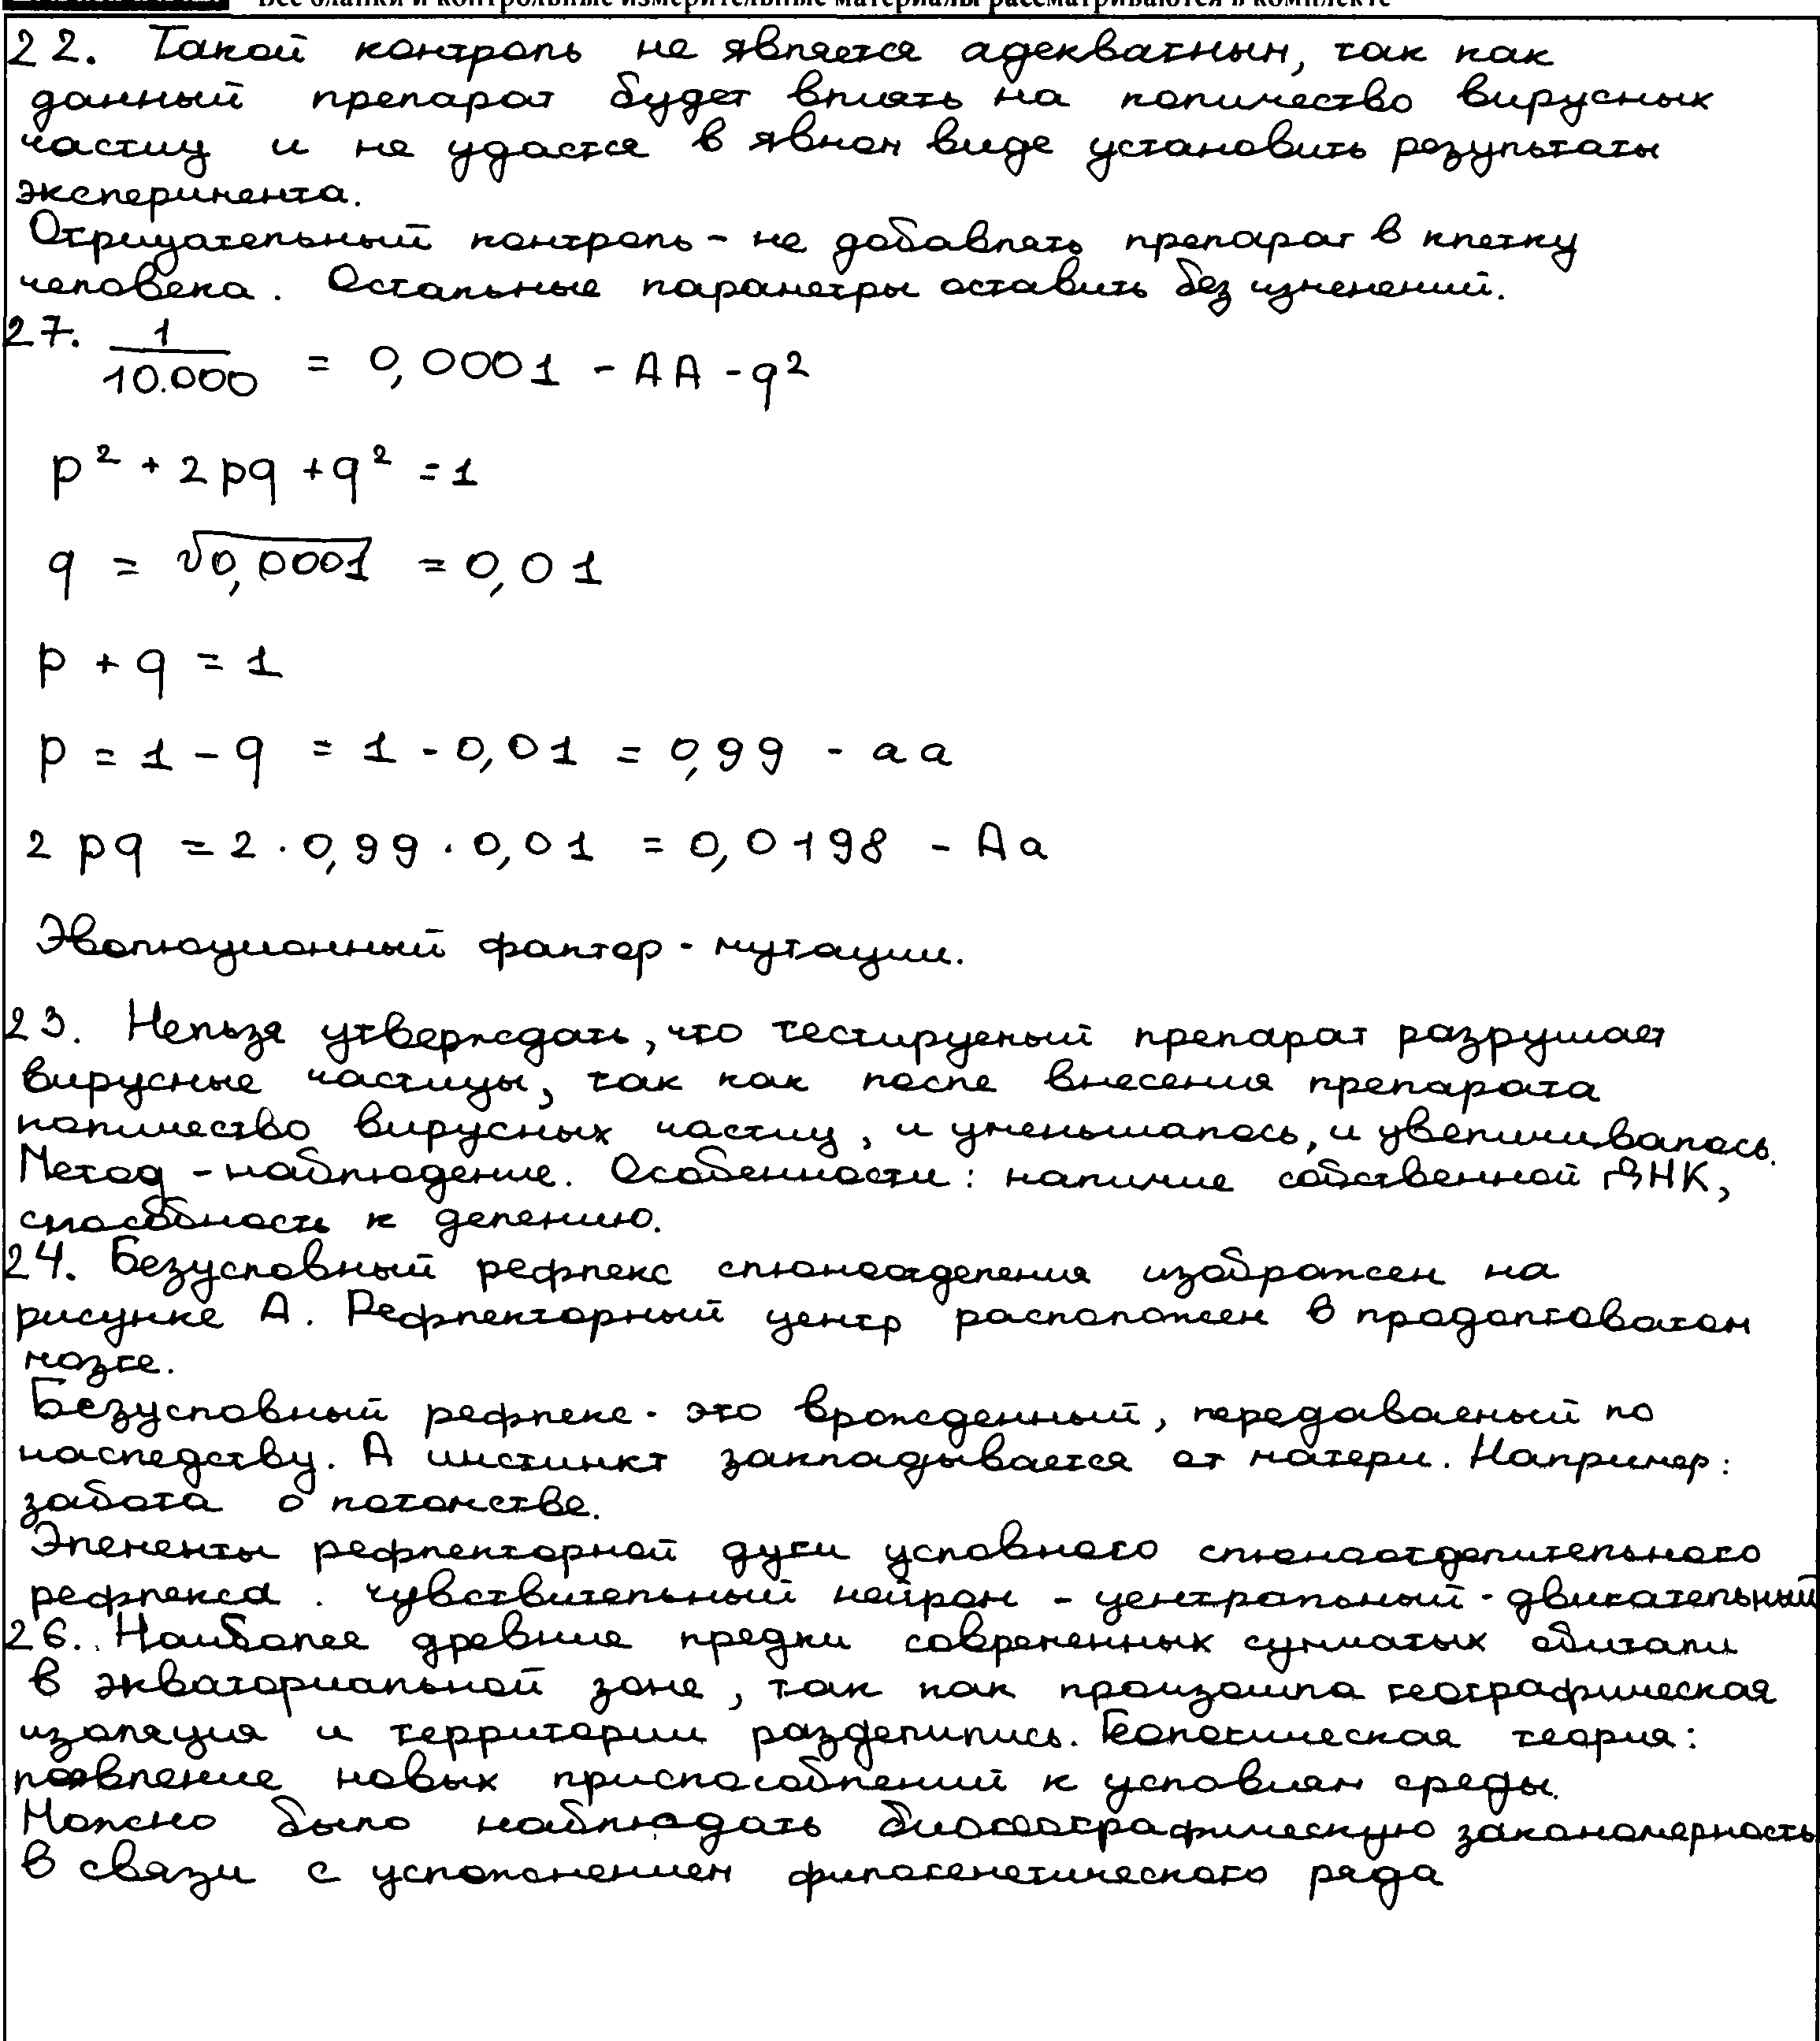 Все бланки и контрольные измерительные материалы рассматриваются в комплекте
22. Такой контроль не является адекватным, так как
данный препарат будет влиять на количество вирусных
частиц и не удастся в явном виде установить результаты
эксперимента.
Отрицательный контроль - не добавлять препарат в клетку
человека. Остальные параметры оставить без изменений.
27. 1/10.000 = 0,0001 - AA - q²
p² + 2pq + q² = 1
q = √0,0001 = 0,01
p + q = 1
p = 1 - q = 1 - 0,01 = 0,99 - aa
2pq = 2 · 0,99 · 0,01 = 0,0198 - Aa
Эволюционный фактор - мутации.
23. Нельзя утверждать, что тестируемый препарат разрушает
вирусные частицы, так как после внесения препарата
количество вирусных частиц, и уменьшалось, и увеличивалось.
Метод - наблюдение. Особенности: наличие собственной ДНК,
способность к делению.
24. Безусловный рефлекс слюноотделения изображен на
рисунке А. Рефлекторный центр расположен в продолговатом
мозге.
Безусловный рефлекс - это врожденный, передаваемый по
наследству. А инстинкт закладывается от матери. Например:
забота о потомстве.
Элементы рефлекторной дуги условного слюноотделительного
рефлекса. чувствительный нейрон - центральный - двигательный
26. Наиболее древние предки современных сумчатых обитали
в экваториальной зоне, так как произошла географическая
изоляция и территории разделились. Геологическая теория:
появление новых приспособлений к условиям среды.
Можно было наблюдать биогеографическую закономерность
в связи с усложнением филогенетического ряда